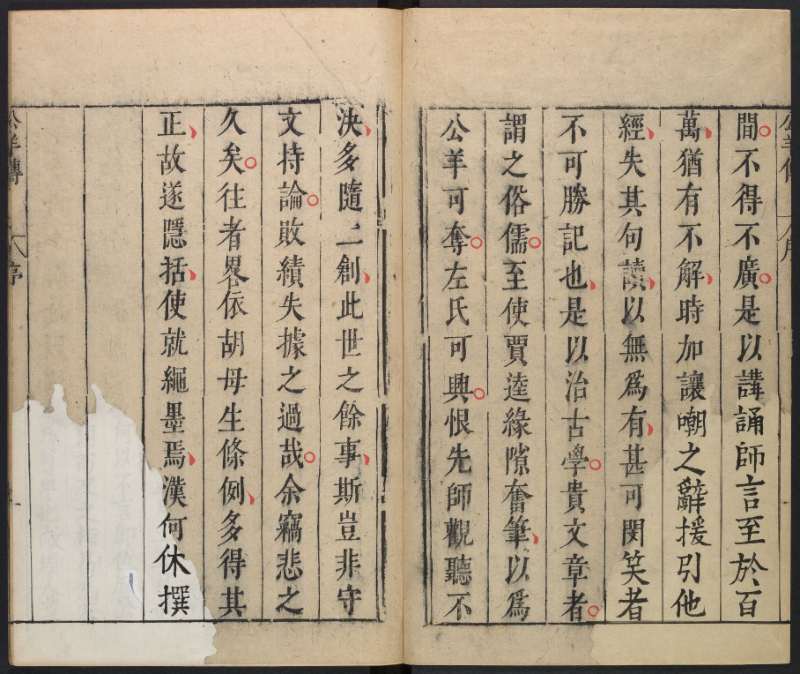 間不得不廣是以講誦師言至於百
萬猶有不解時加讓嘲之辭援引他
經失其句讀以無爲有甚可閔笑者
不可勝記也是以治古學貴文章者
謂之俗儒至使賈逵緣隙奮筆以爲
公羊可奪左氏可興恨先師觀聽不
決多隨二創此世之餘事斯豈非守
文持論敗績失據之過哉余竊悲之
久矣往者畧依胡母生條例多得其
正故遂隱括使就繩墨焉漢何休撰
公羊傳 序